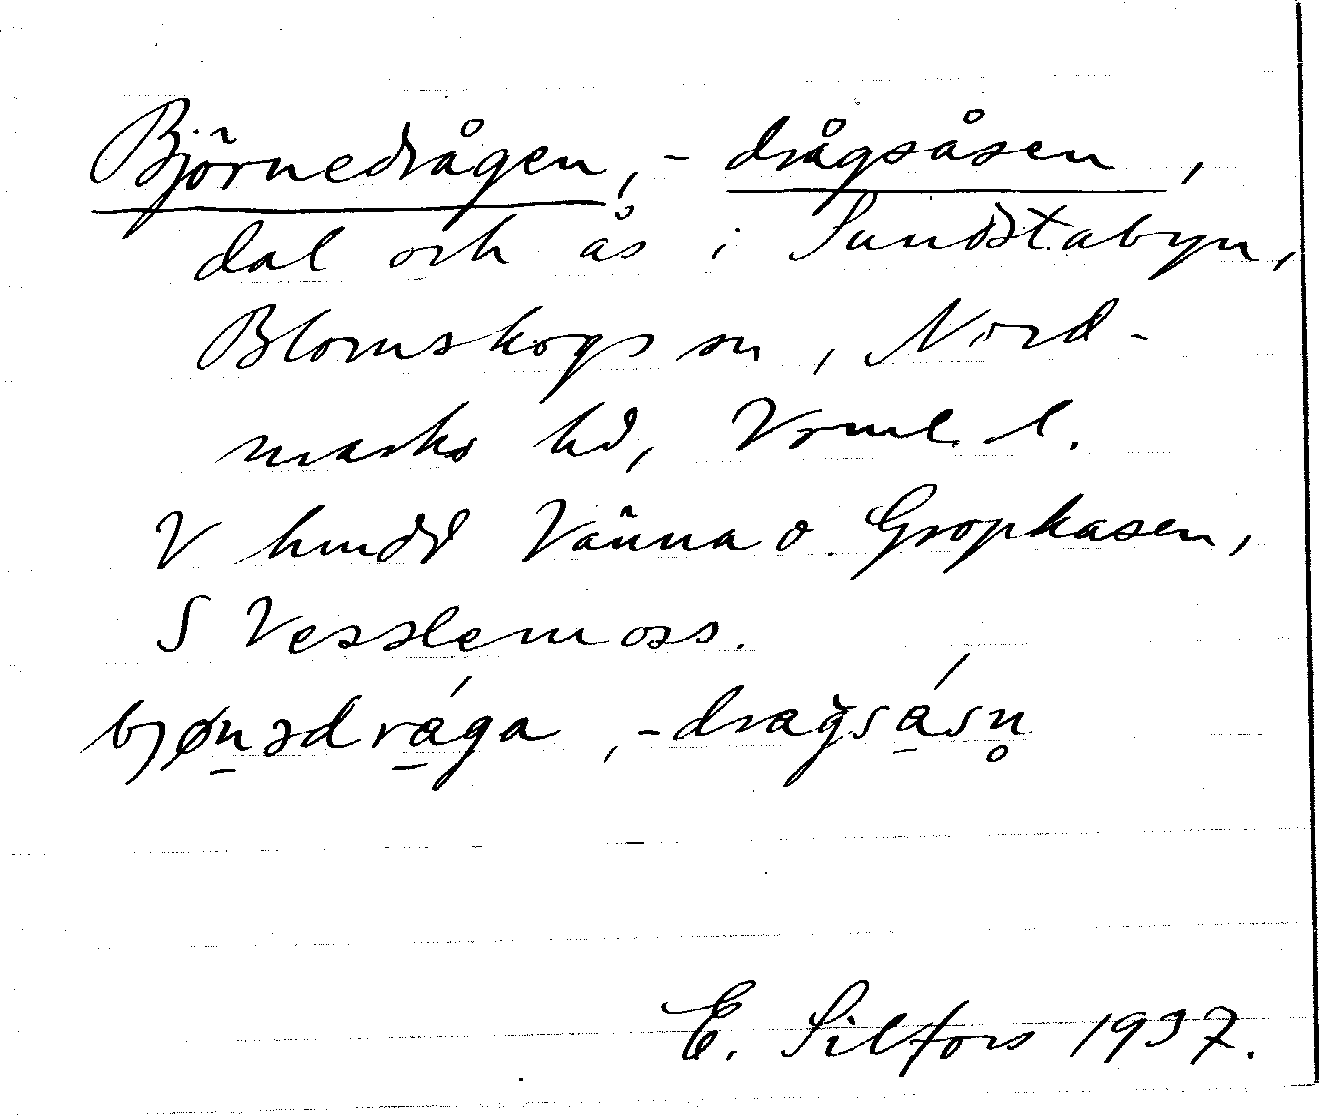 Björnedrågen, - drågsåsen,
dal och ås i Sundstabyn,
Blomskogs sn, Nord-
marks hd, Vrml. l.
V hmdd Vänna o. Gropkasen,
S Vesslemoss.
bjønədrága, -dragsásn̥
E. Silfors 1937.